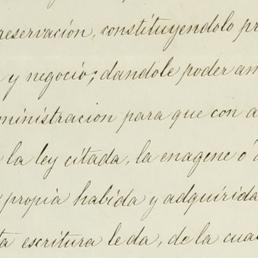 reservación, constituyendolo pr
y negocio; dandole poder am
ministración para que con a
la ley citada, la enagene ó
propia habida y adquirida
ta escritura le da, de la cua